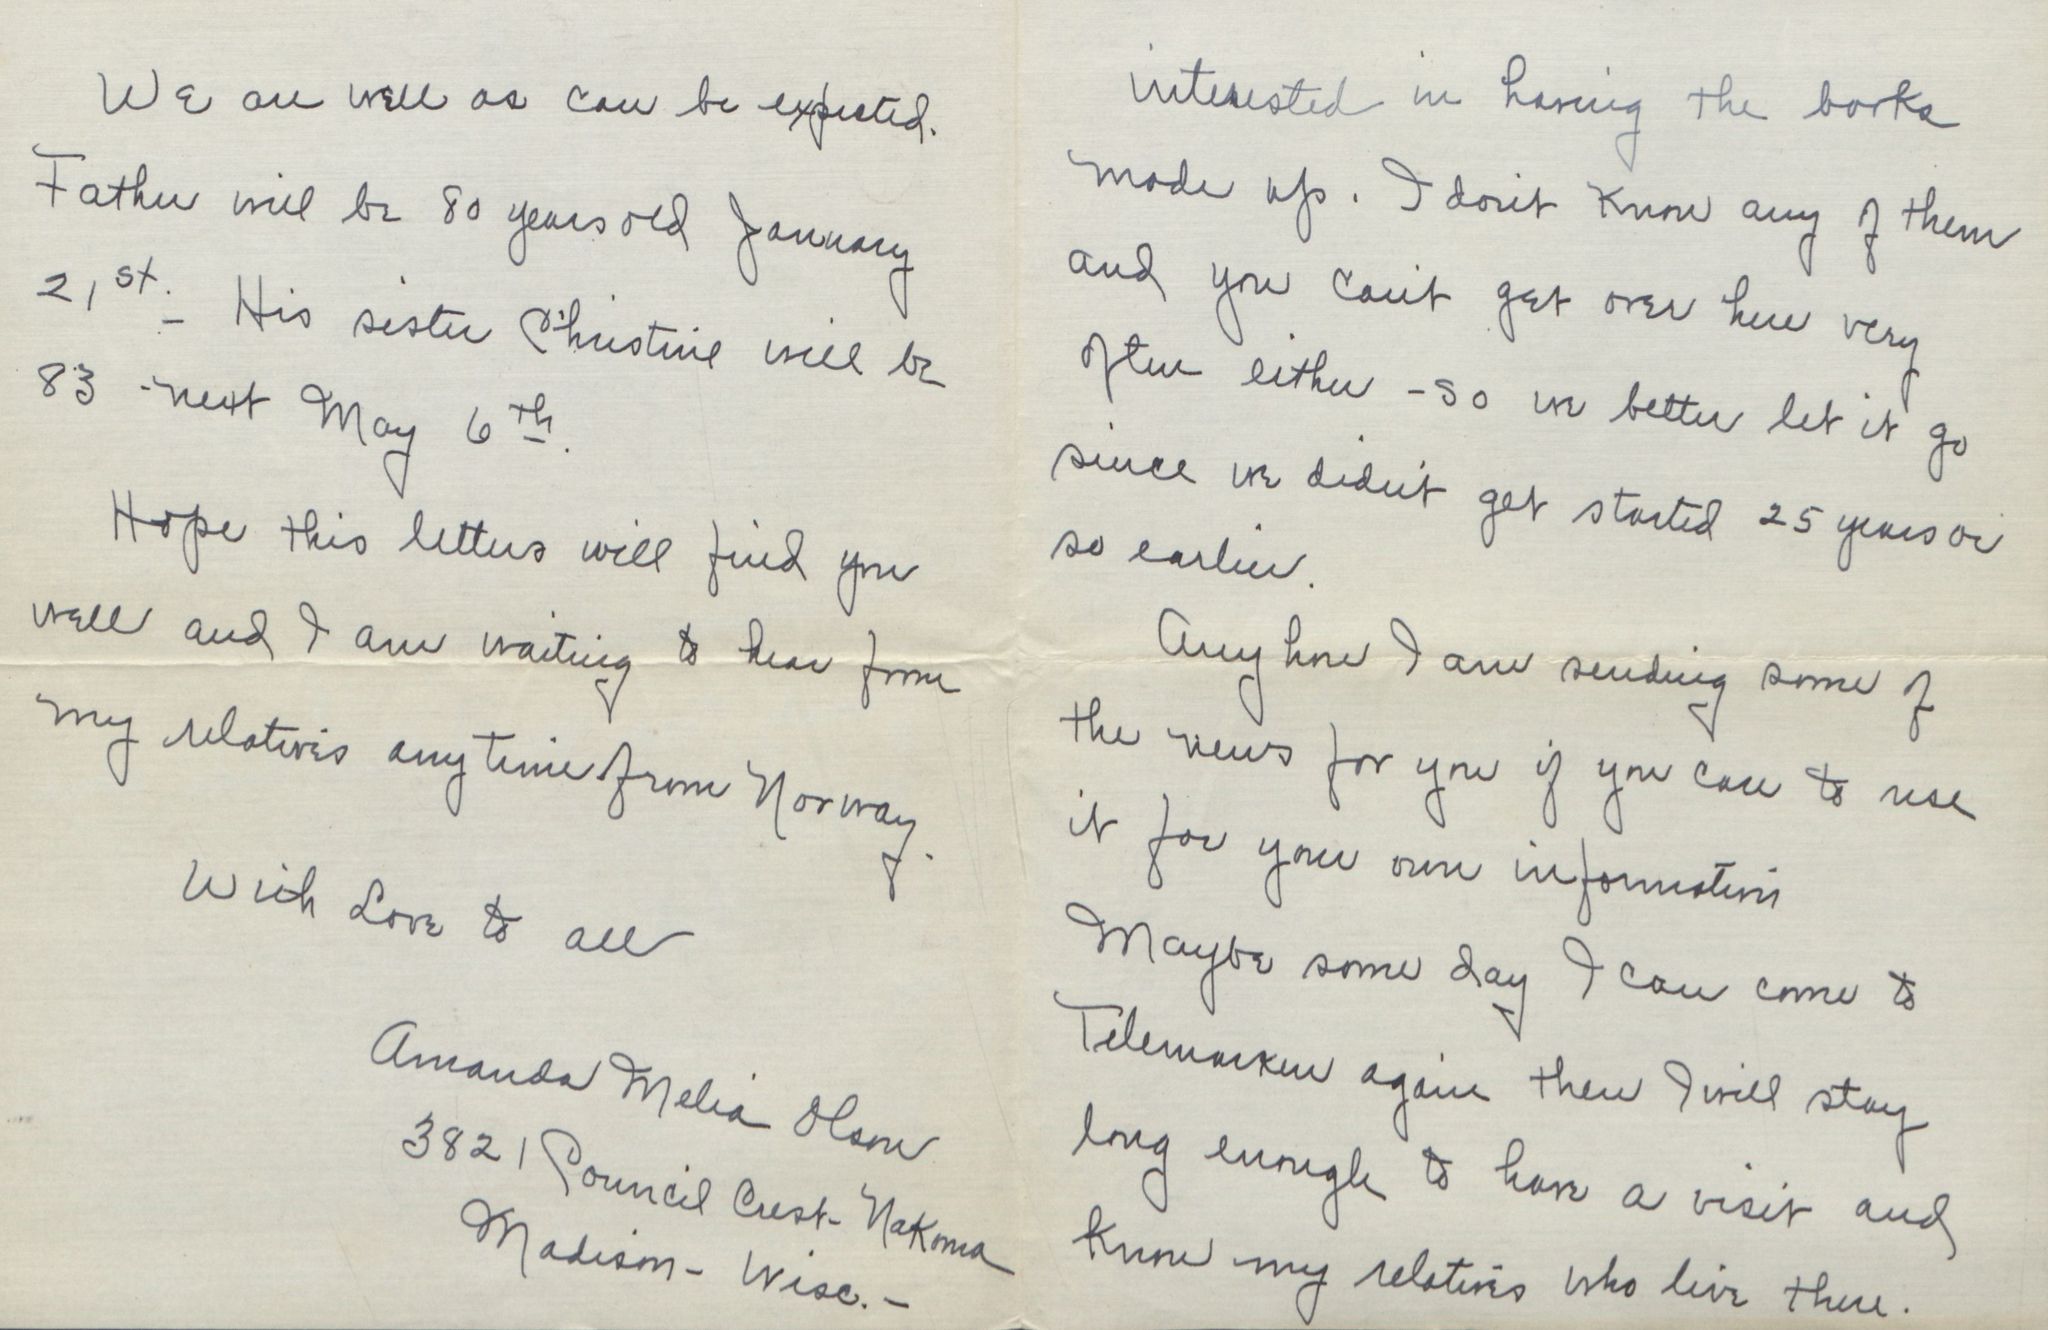 We are well as can be expected.
Father will be 80 years old January
21st. – His sister Christine will be
83 - next May 6th.
Hope this letters will find you
well and I am waiting to hear from
my relatives anytime from Norway.
With Love to all
Amanda Melia Olson
3821 Council Crest - Nakoma
Madison - Wisc. -
interested in having the books
made up. I don't know any of them
and you can't get over here very
often either - so we better let it go
since we didn't get started 25 years or
so earlier.
Anyhow I am sending some of
the news for you if you care to use
it for your own information
Maybe some day I can come to
Telemarken again then I will stay
long enough to have a visit and
know my relatives who live there.